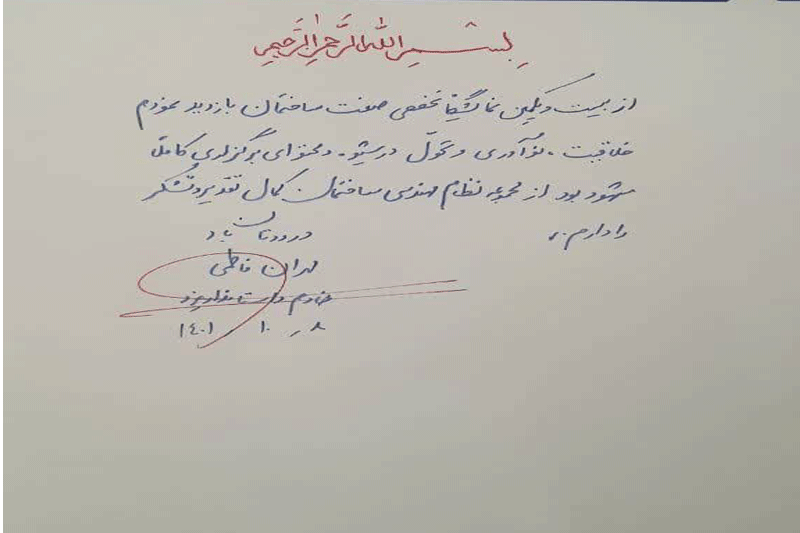 بسم الله الرحمن الرحیم
از بیست و یکمین نمایشگاه تخصصی صنعت ساختمان بازدید نمودم
خلاقیت، نوآوری و تحول در شیوه و محتوای برگزاری کاملاً
مشهود بود از مجموعه نظام مهندسی ساختمان کمال تقدیر و تشکر
را دارم.
درودتان باد
مهران فاطمی
استاندار یزد
۱۴۰۱ - ۱۰ - ۸